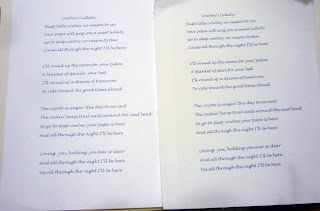 Cowboy's Lullaby
Hush little cowboy no reason to cry
Your papa will sing you a sweet lullaby
Go to sleep cowboy no reason to fear
Cause all through the night I'll be here
I'll round up the moon for your pillow
A blanket of stars for your bed
I'll round up a dream of tomorrow
To ride toward the good times ahead
The coyote is singin' this day to an end
The rockin' horse trail waits around the next bend
So go to sleep cowboy your papa is here
And all through the night I'll be here
Loving you, holding you ever so dear
And all through the night I'll be here
Yes all through the night I'll be here
Cowboy's Lullaby
Hush little cowboy no reason to cry
Your papa will sing you a sweet lullaby
Go to sleep cowboy no reason to fear
Cause all through the night I'll be here
I'll round up the moon for your pillow
A blanket of stars for your bed
I'll round up a dream of tomorrow
To ride toward the good times ahead
The coyote is singin' this day to an end
The rockin' horse trail waits around the next bend
So go to sleep cowboy your papa is here
And all through the night I'll be here
Loving you, holding you ever so dear
And all through the night I'll be here
Yes all through the night I'll be here